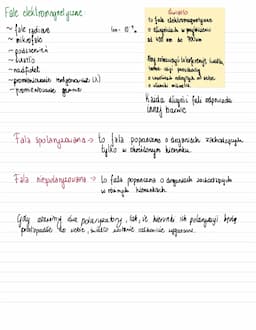 Fale elektromagnetyczne:
~ fale radiowe
~ mikrofale
~ podczerwień
~ światło
~ nadfiolet
~ promieniowanie rentgenowskie (X)
~ promieniowanie gamma
Światło
to fale elektromagnetyczne
o długościach w przybliżeniu
od 400 nm do 700 nm
Każda długość fali odpowiada
innej barwie
Fala spolaryzowana → to fala poprzeczna o drganiach zachodzących
tylko w określonym kierunku.
Fala niespolaryzowana → to fala poprzeczna o drganiach zachodzących
w różnych kierunkach
Gdy ustawimy dwa polaryzatory, tak, że kierunki ich polaryzacji będą
prostopadłe do siebie, światło zostanie całkowicie wygaszone.